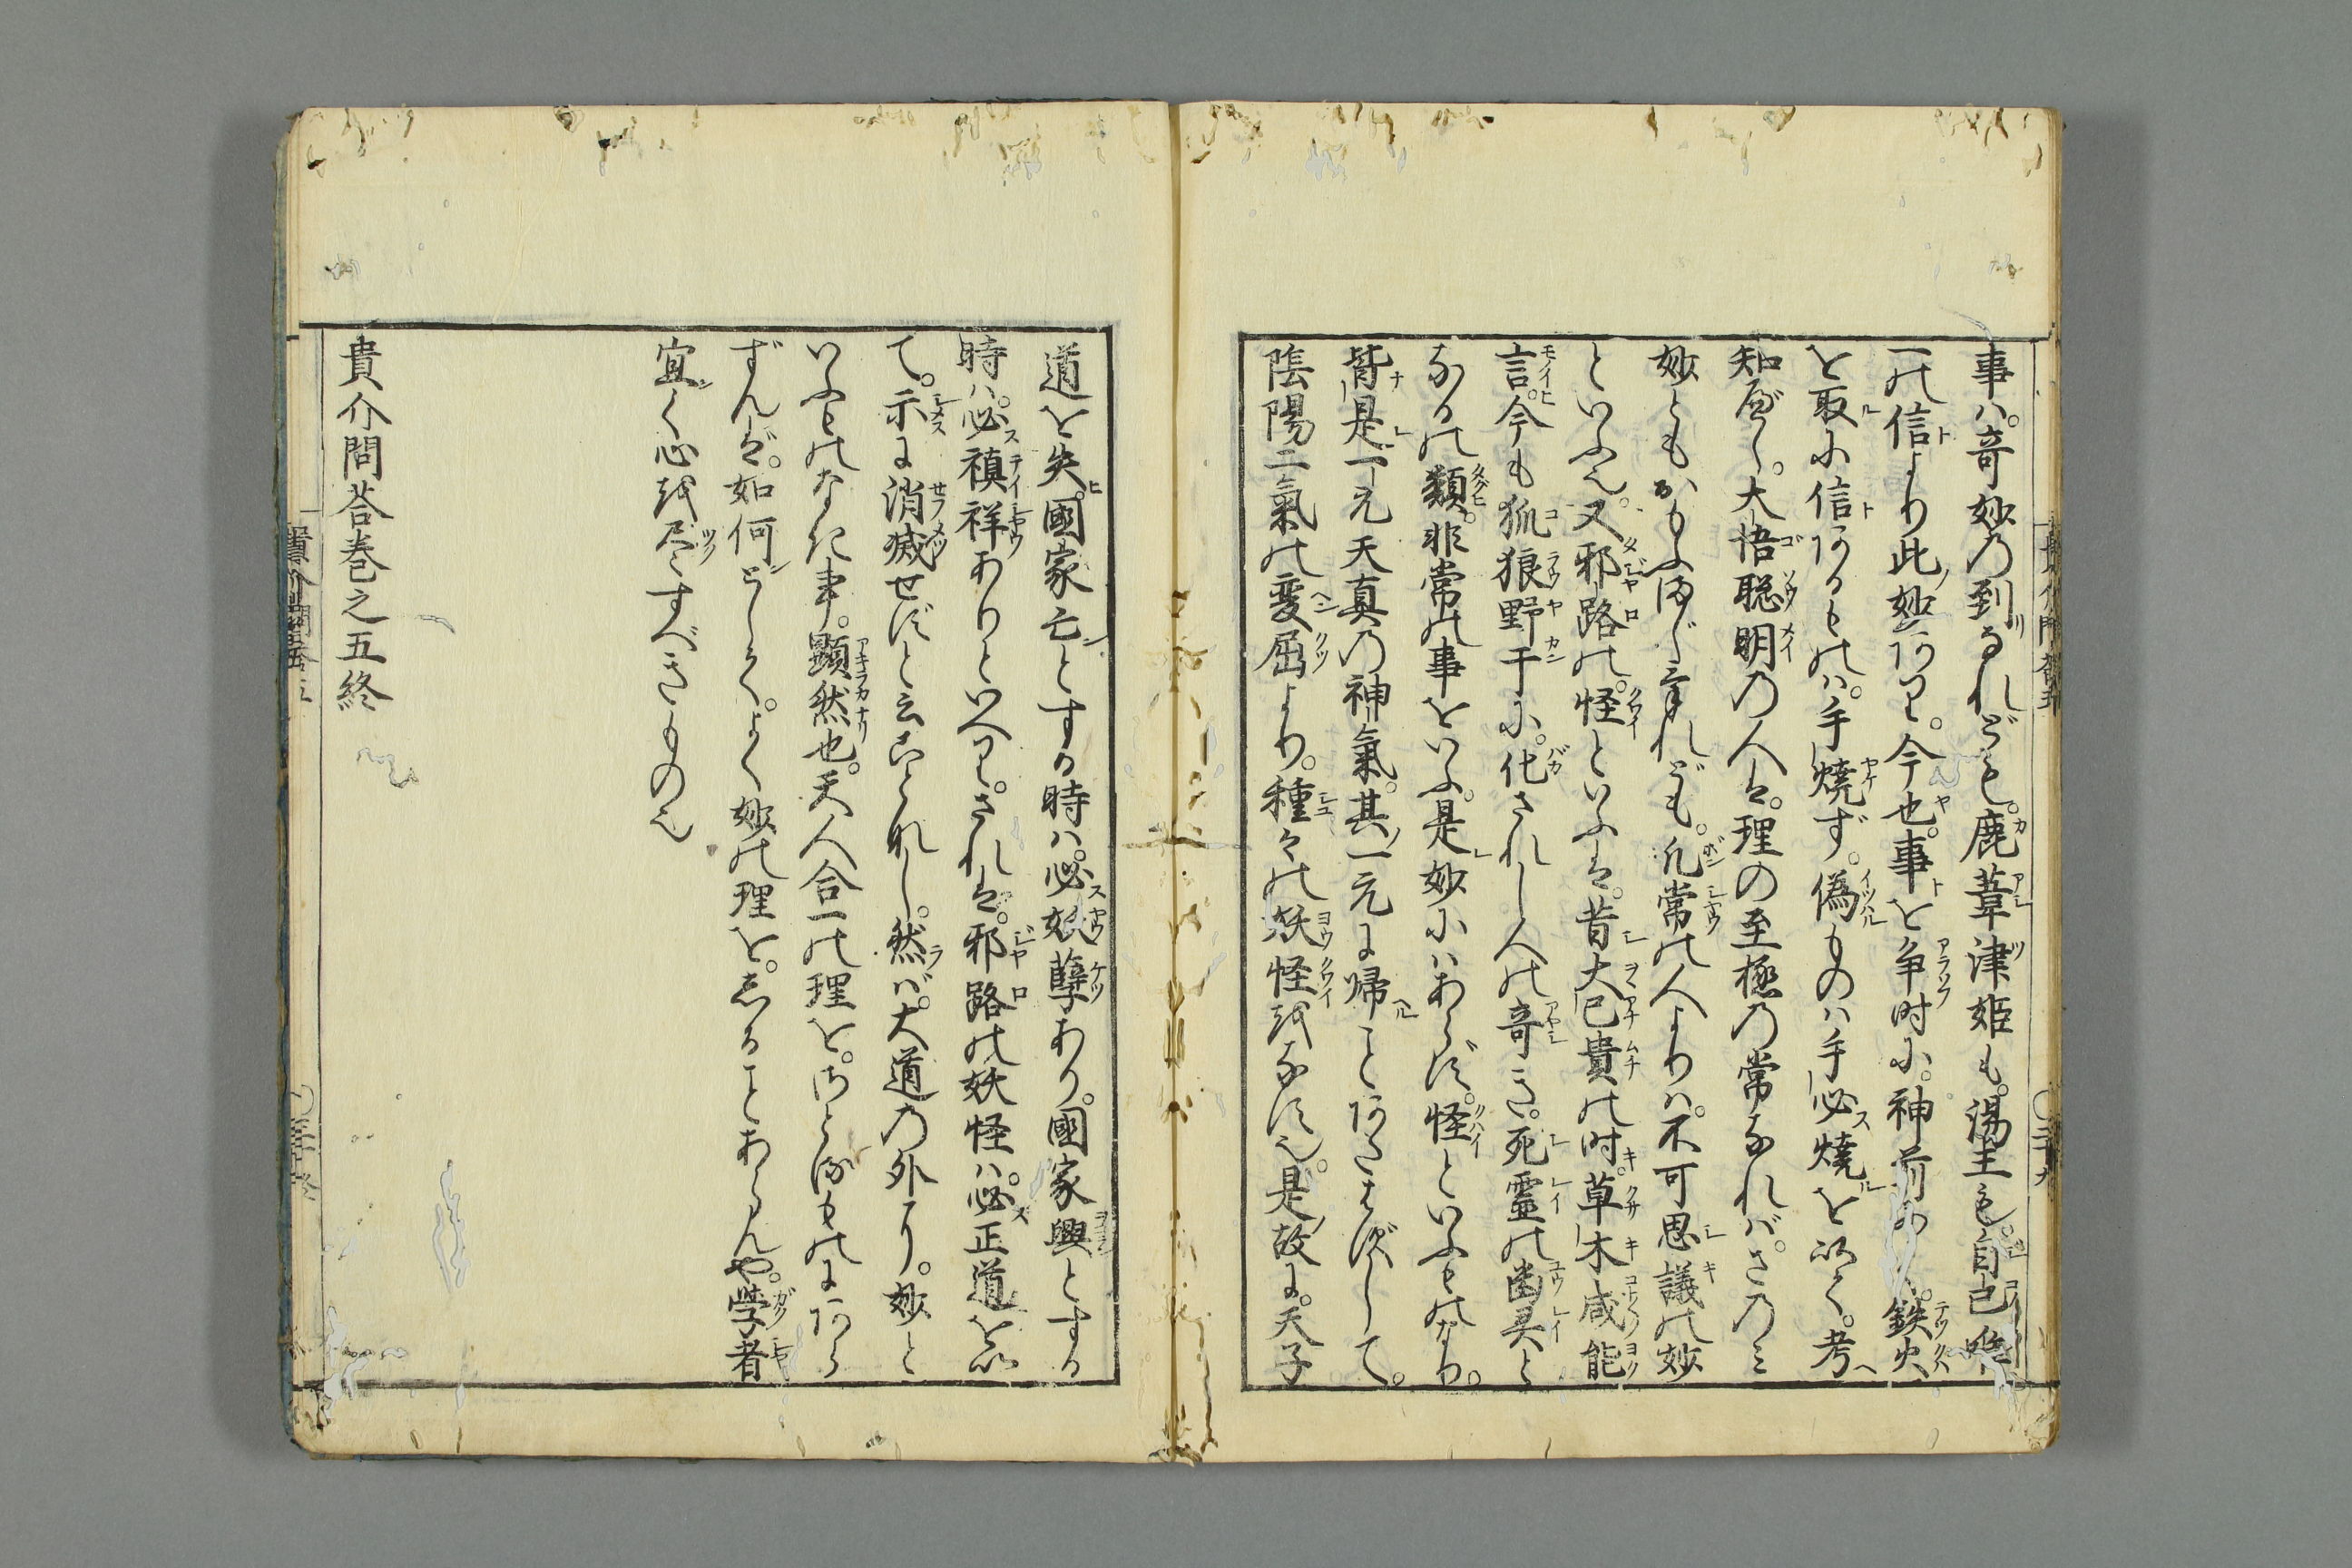 事ハ。奇妙乃到なれども。鹿葦津姫も。湯主も。自己唯
一の信より此妙あり。今也。事を争時に。神前の。鉄火
を取に信あるものハ。手焼ず。偽ものハ手必焼を以て。考
知べし。大悟聡明の人は。理の至極の常なれバ。さのミ
妙ともおもふまじけれども。凡常の人よりハ。不可思議の妙
といふ也。又邪路の。怪といふは。昔大已貴の時。草木咸能
言。今も狐狼野干に。化されし人の奇き。死霊の幽灵と
なるの類。非常の事をいふ。是妙にハあらず。怪といふものなり。
皆是一元天真の神氣。其一元に帰ことあたはずして。
陰陽二氣の変屈より。種々の妖怪をなす也。是故に。天子
道を失。國家亡とする時ハ。必妖孽あり。國家興とする
時ハ。必禎祥ありといへり。されは。邪路の妖怪ハ。必正道を以
て。示に消滅せずと云ことなし。然バ。大道の外に。妙と
いふものなき事。顕然也。天人合一の理を。さとるものにあら
ずんば。如何として。よく妙の理を。しることあらんや。学者
宜く心を尽すべきもの也
貴介問荅巻之五終